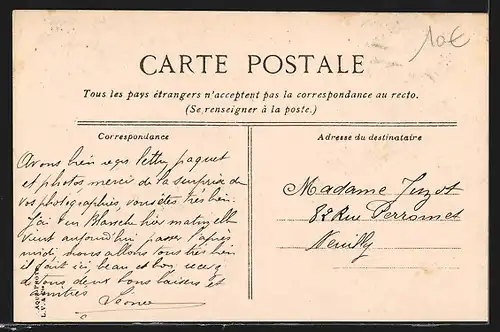 10€
CARTE POSTALE
Tous les pays étrangers n'acceptent pas la correspondance au recto.
(Se renseigner à la poste.)
Correspondance
Adresse du destinataire
Avons bien reçu lettre, paquet
et photos merci de la surprise de
vos photographies vous êtes très bien.
J'ai vu Blanche hier matin elle
vient aujourd'hui passer l'après
midi, nous allons tous très bien
il fait ici, beau et bon, recevez
de tous deux bons baisers et
Madame Juzot
82 Rue Perronet
Neuilly
AQUA PHOTO
L.V. &